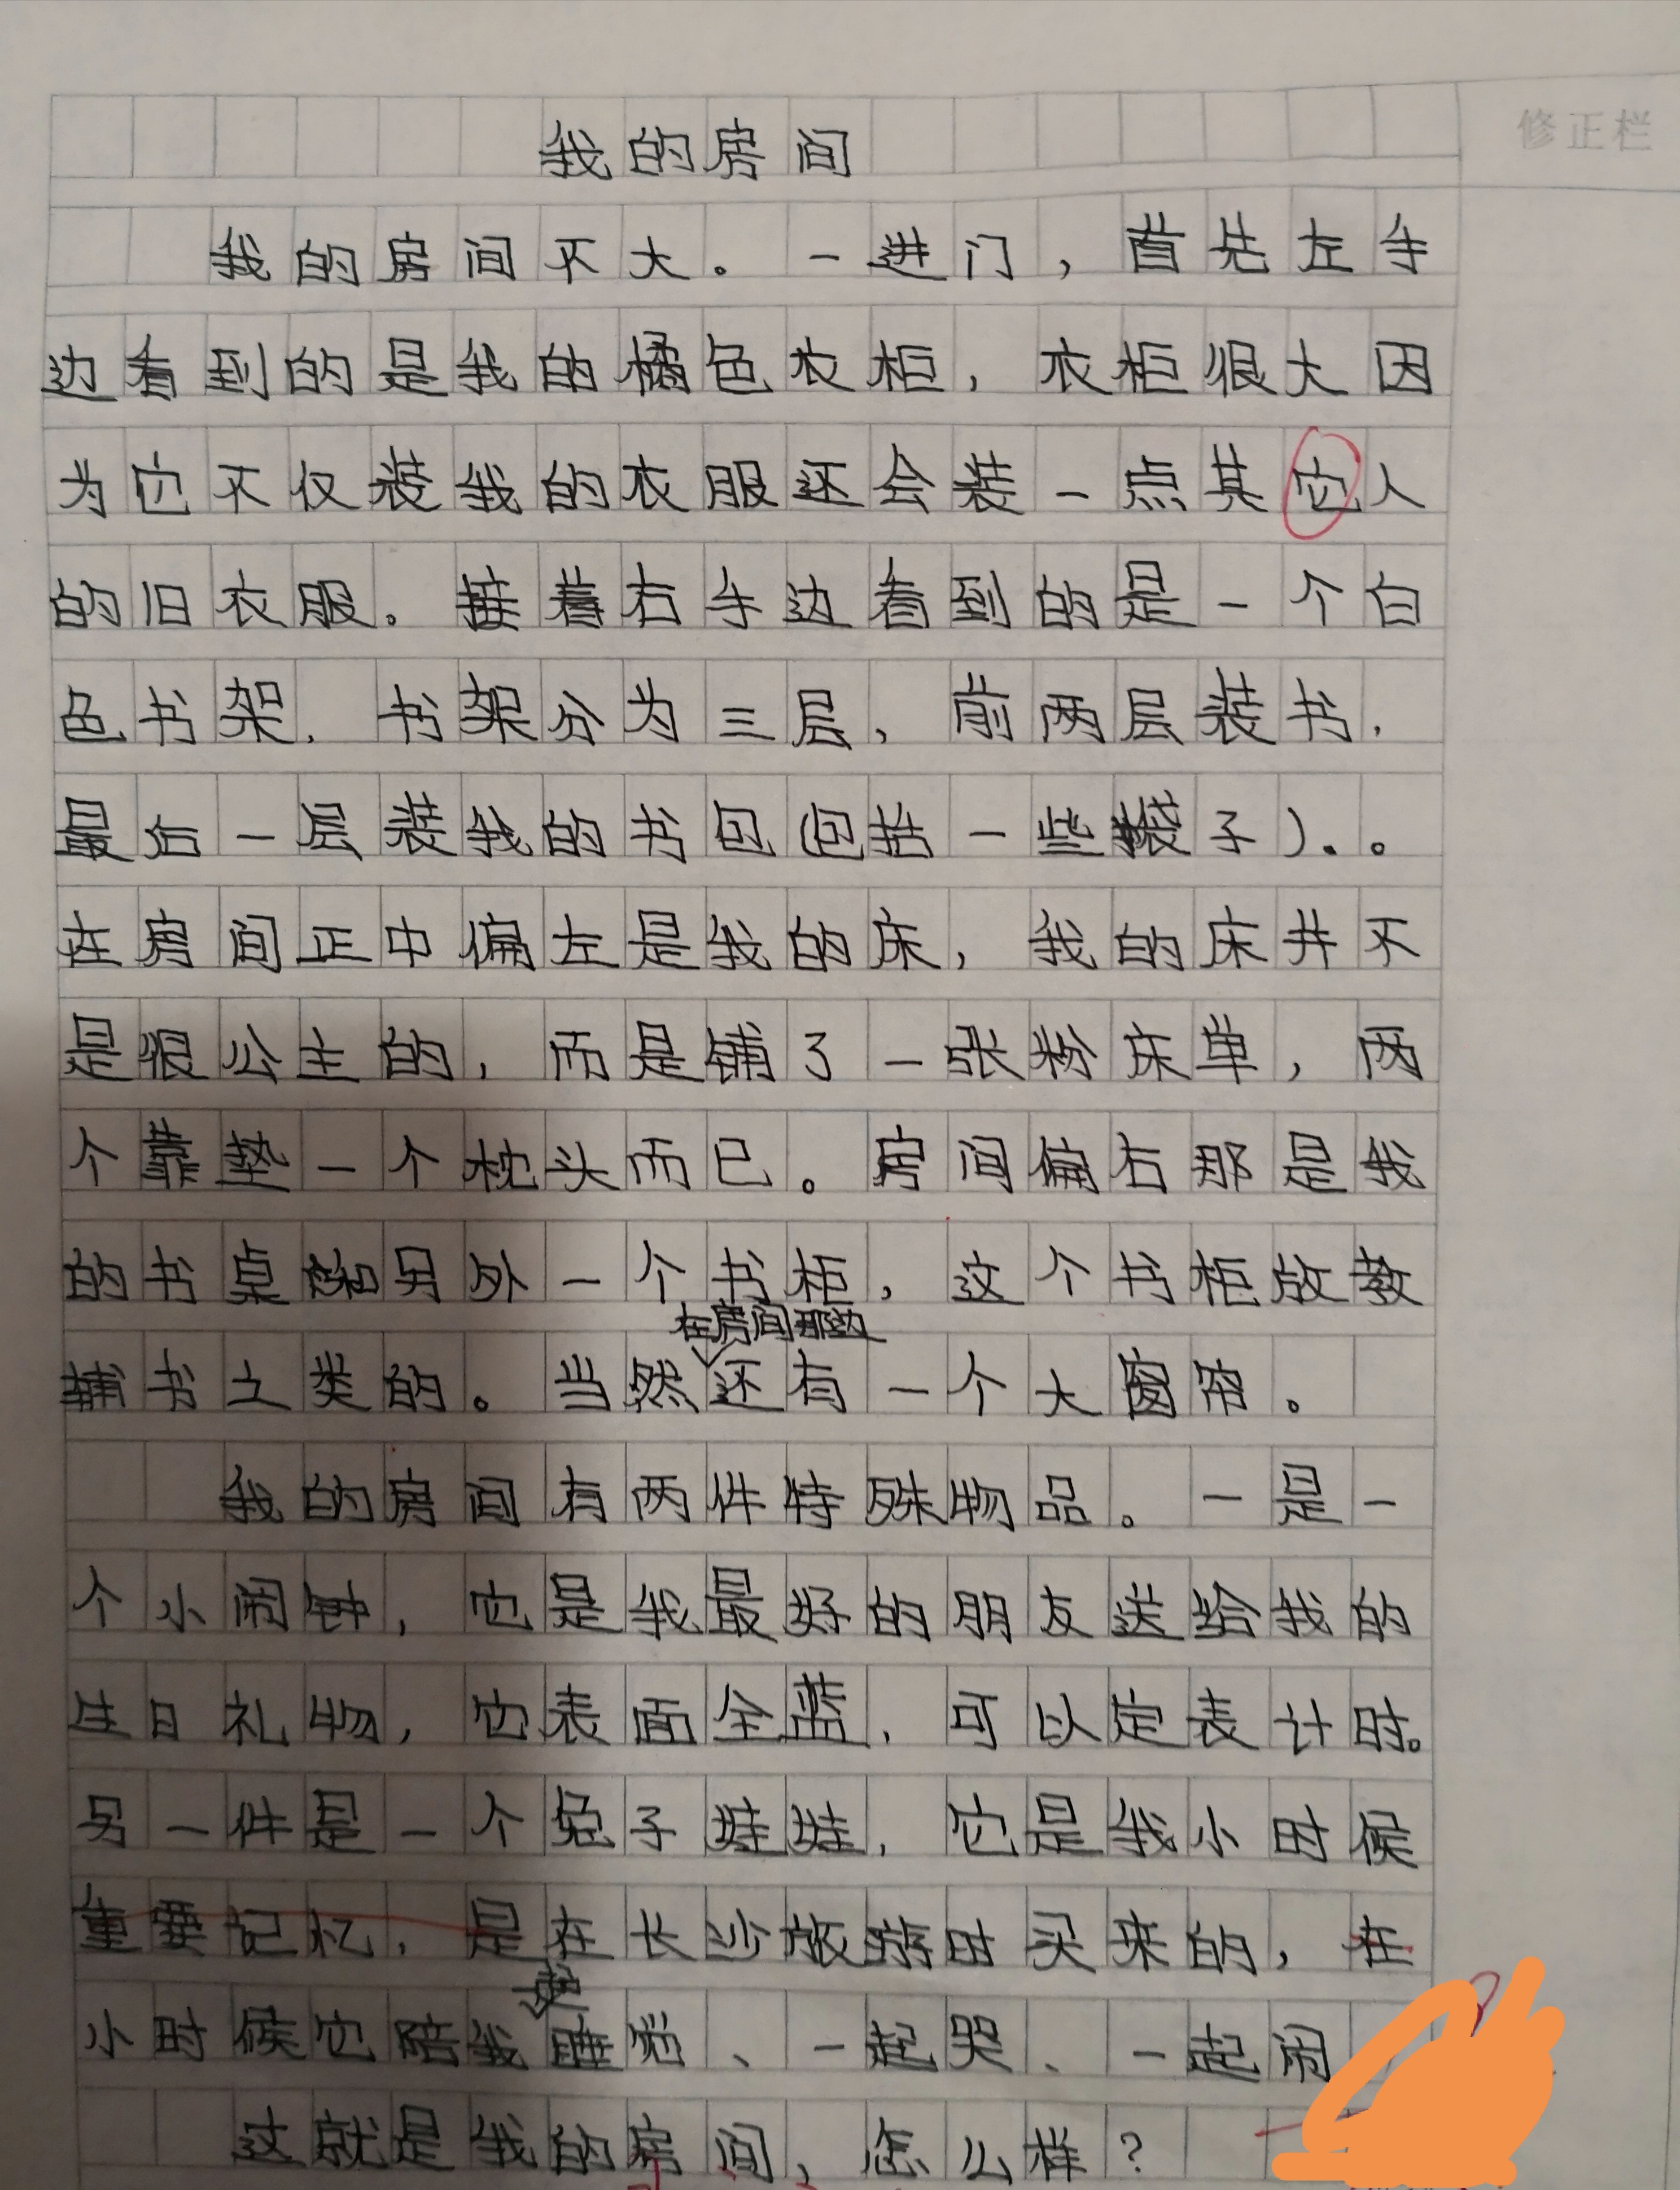 修正栏
我的房间
我的房间不大。一进门，首先左手
边看到的是我的橘色衣柜，衣柜很大因
为它不仅装我的衣服还会装一点其它人
的旧衣服。接着右手边看到的是一个白
色书架，书架分为三层，前两层装书，
最后一层装我的书包(包括一些袋子)。。
在房间正中偏左是我的床，我的床并不
是很公主的，而是铺了一张粉床单，两
个靠垫一个枕头而已。房间偏右那是我
的书桌和另外一个书柜，这个书柜放教
在房间那边
辅书之类的。当然还有一个大窗帘。
我的房间有两件特殊物品。一是一
个小闹钟，它是我最好的朋友送给我的
生日礼物，它表面全蓝，可以定表计时。
另一件是一个兔子娃娃，它是我小时候
重要记忆，是在长沙旅游时买来的，在
小时候它陪我睡觉、一起哭、一起闹
这就是我的房间，怎么样？